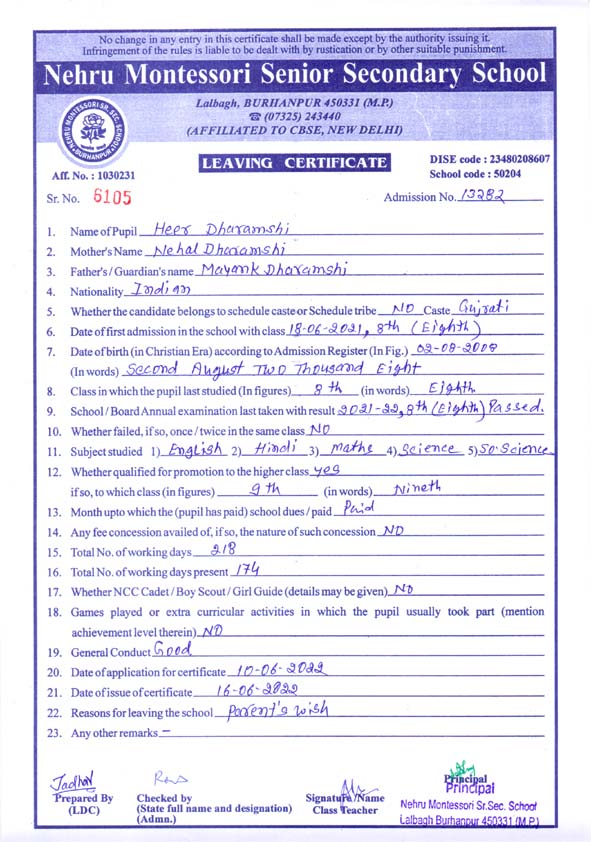 No change in any entry in this certificate shall be made except by the authority issuing it.
Infringement of the rules is liable to be dealt with by rustication or by other suitable punishment.
Nehru Montessori Senior Secondary School
Lalbagh, BURHANPUR 450331 (M.P.)
☎ (07325) 243440
(AFFILIATED TO CBSE, NEW DELHI)
NEHRU MONTESSORI SR. SEC. SCHOOL
BURHANPUR
LEAVING CERTIFICATE
DISE code : 23480208607
School code : 50204
Aff. No. : 1030231
Sr. No. 6105
Admission No. 13282
1. Name of Pupil Heer Dharamshi
2. Mother's Name Nehal Dharamshi
3. Father's / Guardian's name Mayank Dharamshi
4. Nationality Indian
5. Whether the candidate belongs to schedule caste or Schedule tribe NO Caste Gujrati
6. Date of first admission in the school with class 18-06-2021, 8th (Eighth)
7. Date of birth (in Christian Era) according to Admission Register (In Fig.) 02-08-2008
(In words) Second August Two Thousand Eight
8. Class in which the pupil last studied (In figures) 8th (in words) Eighth
9. School / Board Annual examination last taken with result 2021-22, 8th (Eighth) Passed.
10. Whether failed, if so, once / twice in the same class NO
11. Subject studied 1) English 2) Hindi 3) maths 4) Science 5) So. Science
12. Whether qualified for promotion to the higher class yes
if so, to which class (in figures) 9th (in words) Nineth
13. Month upto which the (pupil has paid) school dues / paid Paid
14. Any fee concession availed of, if so, the nature of such concession NO
15. Total No. of working days 218
16. Total No. of working days present 174
17. Whether NCC Cadet / Boy Scout / Girl Guide (details may be given) NO
18. Games played or extra curricular activities in which the pupil usually took part (mention
achievement level therein) NO
19. General Conduct Good
20. Date of application for certificate 10-06-2022
21. Date of issue of certificate 16-06-2022
22. Reasons for leaving the school Parent's wish
23. Any other remarks –
Jadhav
Prepared By
(LDC)
Checked by
(State full name and designation)
(Admn.)
Signature / Name
Class Teacher
Principal
Principal
Nehru Montessori Sr.Sec. School
Lalbagh Burhanpur 450331 (M.P.)